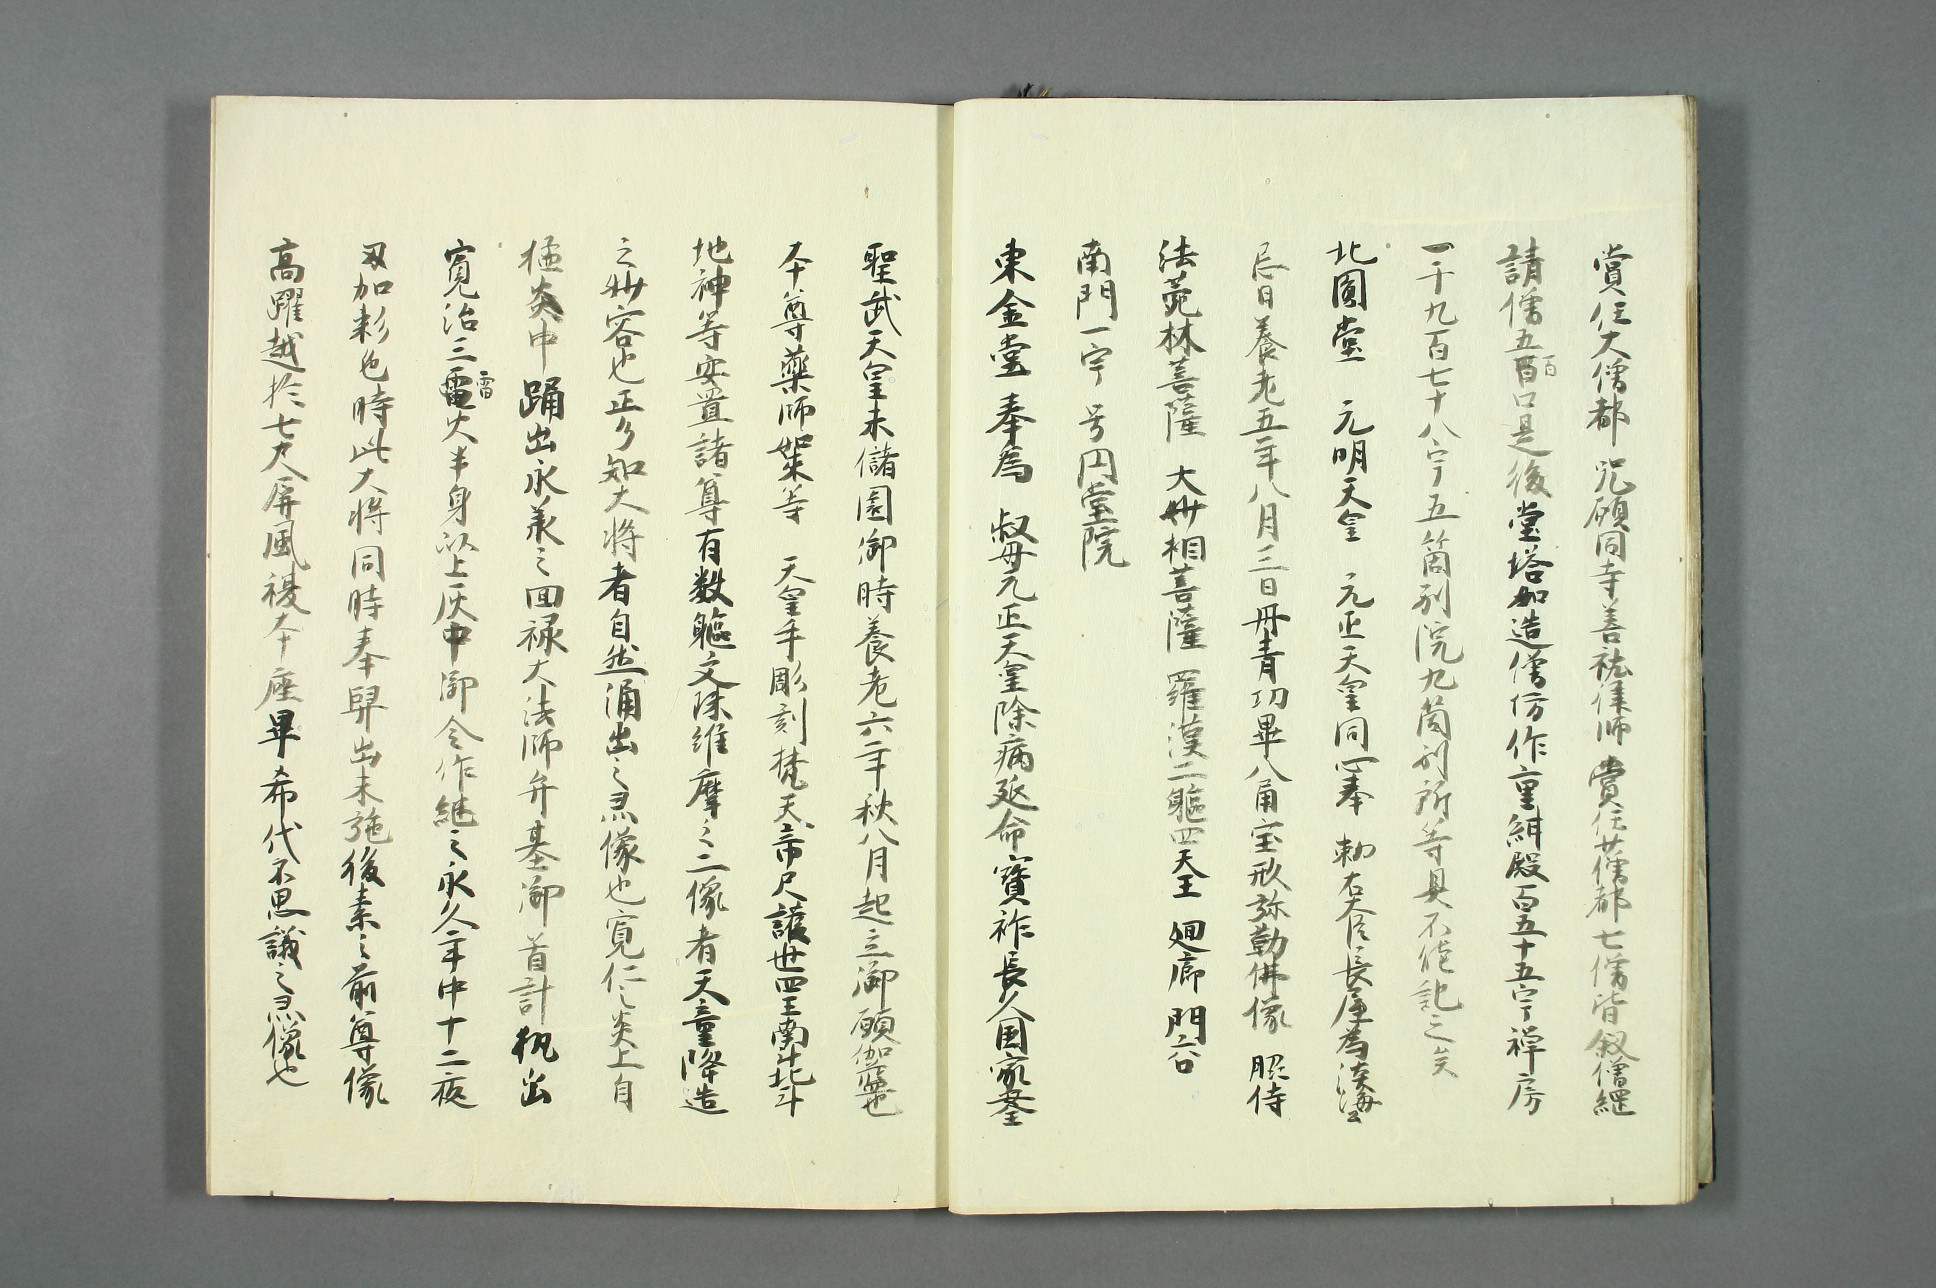 賞任大僧都 咒願同寺善祐律師 賞任少僧都七僧皆叙僧綱
請僧五百口是後堂塔加造僧坊作重細殿百五十五宇禅房
百
一千九百七十八宇五箇別院九箇別所等具不能記之矣
北圓堂 元明天皇 元正天皇同心奉 勅右大臣長屋為淡海公
忌日養老五年八月三日丹青功畢八角宝形弥勒佛像 脇侍
法菀林菩薩 大妙相菩薩 羅漢二軀四天王 廻廊 門六
南門一宇 号円堂院
東金堂 奉為 叔母元正天皇除病延命寳祚長久国家安全
聖武天皇未儲圀御時養老六年秋八月起立御願伽藍也
本尊薬師如来等 天皇手彫刻梵天帝尺護世四王南斗北斗
地神等安置諸尊有数軀文殊維摩之二像者天童降造
之妙容也正了知大将者自然涌出之霊像也寛仁之炎上自
猛炎中踊出永承之回禄大法師弁基御首計抓出
寛治三電火半身以上灰中御令作継之永久二年中十二夜
雷
叉加彩色時此大将同時奉舁出未施後素之前尊像
高躍越於七尺屏風複本座畢希代不思議之霊像也